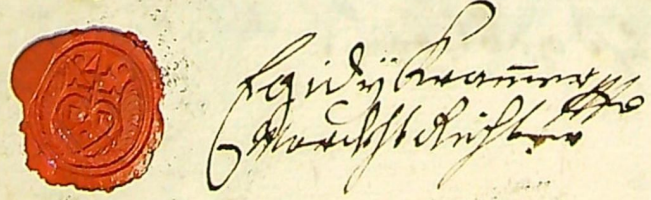 Egidÿ Kram̄er
Marckht Richter